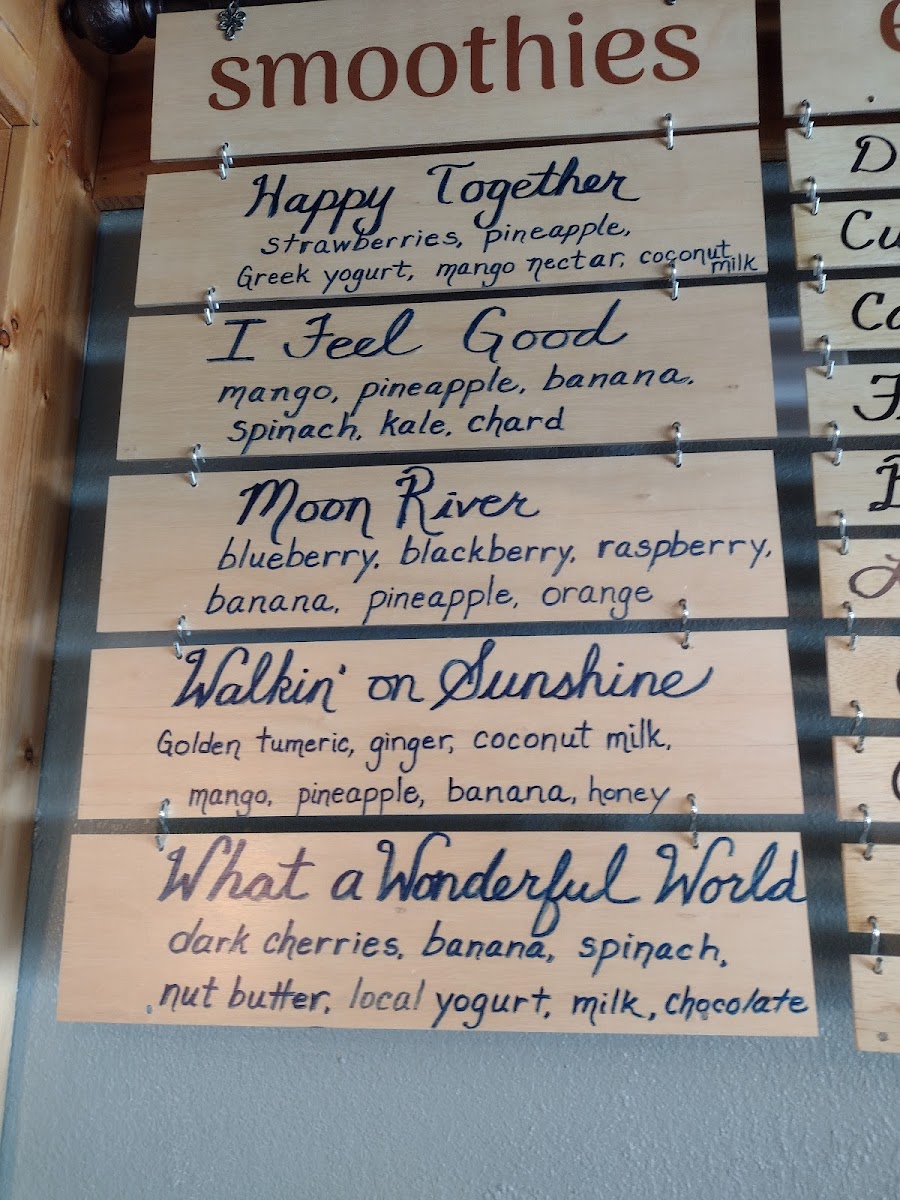 smoothies
Happy Together
strawberries, pineapple,
Greek yogurt, mango nectar, coconut milk
I Feel Good
mango, pineapple, banana,
spinach, kale, chard
Moon River
blueberry, blackberry, raspberry,
banana, pineapple, orange
Walkin' on Sunshine
Golden tumeric, ginger, coconut milk,
mango, pineapple, banana, honey
What a Wonderful World
dark cherries, banana, spinach,
nut butter, local yogurt, milk, chocolate